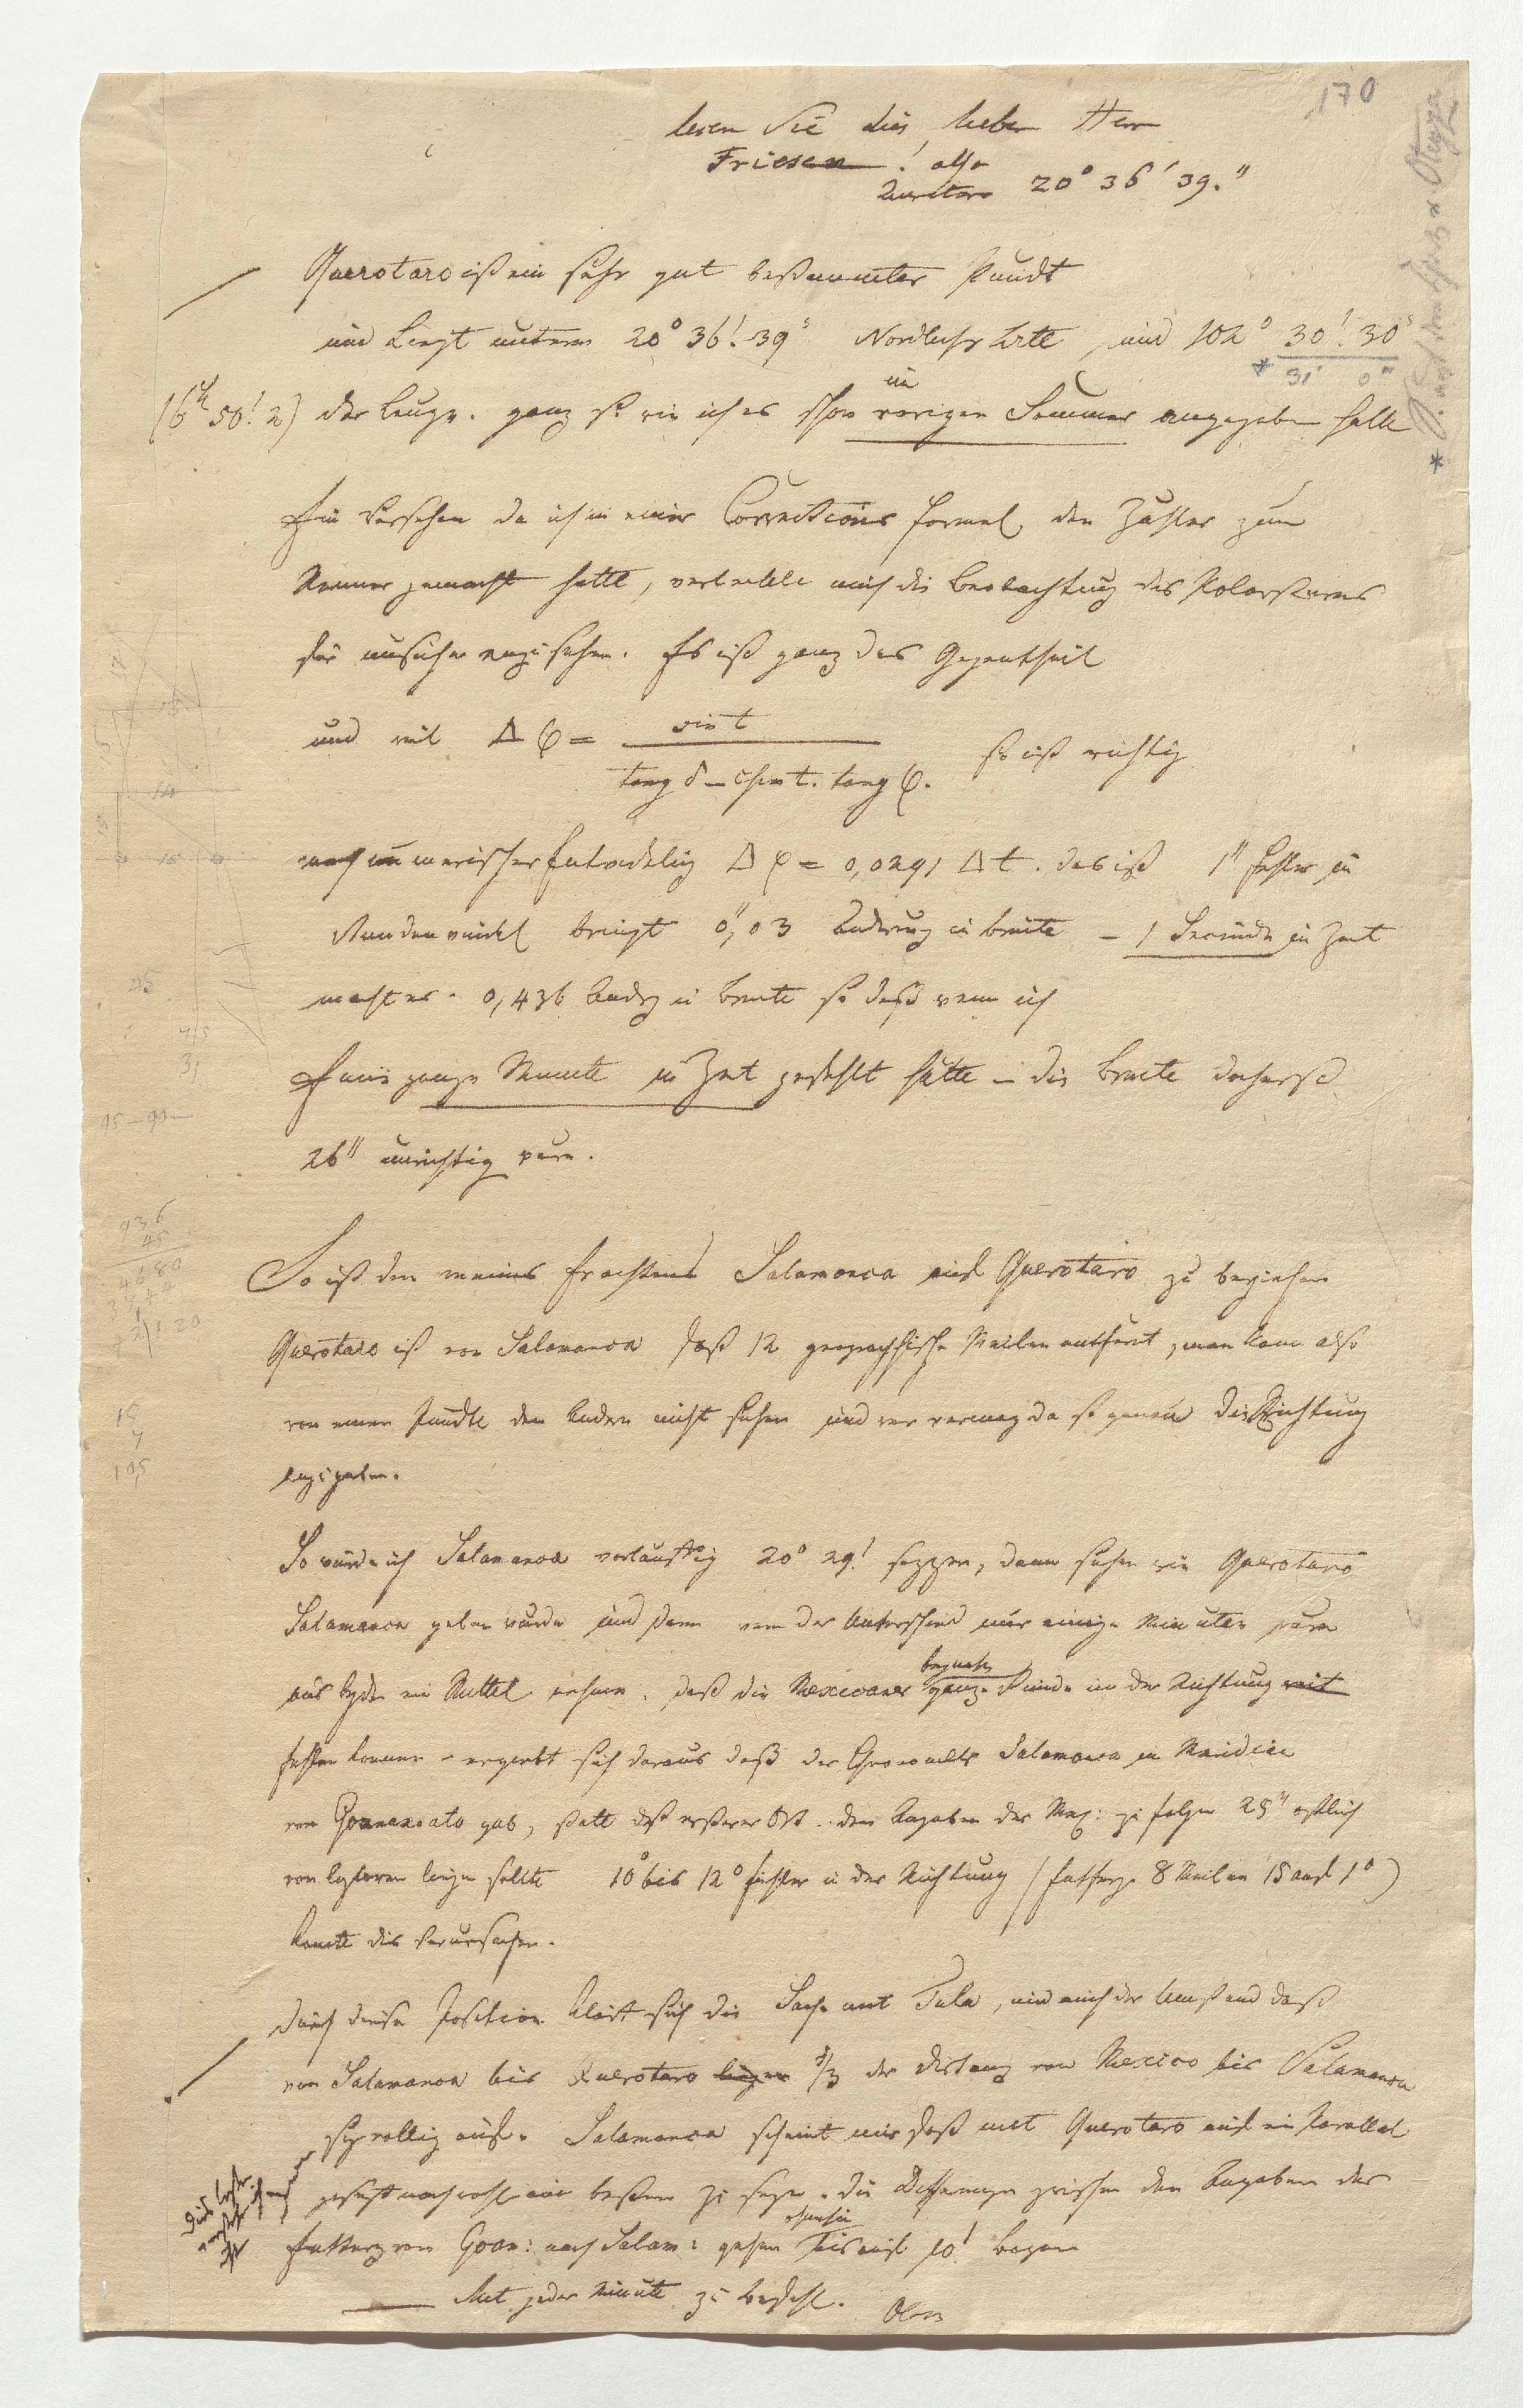 170
lesen Sie dies, lieber Herr
Friesen! also
Queretaro 20° 36′ 39.″
Querotaro ist ein sehr gut bestimmter Punckt
und liegt unterm 20° 36! 39″ Nordlicher Brte und 102° 30! 30″
* 31′ 0″
(6h 50! 2) der Länge. ganz so wie ich es schon im vorigen Sommer angegeben hatte
Ein Versehen da ich in einer Corrections formel den Zähler zum
Nenner gemacht hatte, verleitete mich die Beobachtung des Polarsterns
für unsicher anzusehen. Es ist ganz das Gegentheil
und mit Δ φ = sin t / tang δ – cosin t. tang φ. so ist richtig
nach numerischer Entwickelung Δ φ = 0,0291 Δ t. das ist 1″ Fehler im
Stundenwinkel bringt 0″,03 Aenderung in Breite – 1 Secunde in Zeit
macht es 0,436 Aendrg in Breite so daß wenn ich
Eine ganze Minute in Zeit gefehlt hätte – die Breite doch erst
26″ unrichtig wäre.
So ist denn meines Erachtens Salamanca auf Querotaro zu beziehen
Querotaro ist von Salamanca fast 12 geographische Meilen entfernt, man kann also
von einem Punckte den andern nicht sehen und wer vermag da so genau die Richtung
anzugeben.
So würde ich Salamanca vorläuffig 20° 29! sezzen, dann sehen wie Querotaro
Salamanca geben würde und dann wenn der Unterschied nur einige Minuten wäre
aus beyden ein Mittel nehmen. daß die Mexicaner ganze Grade in der Richtung
fehlen können – ergiebt sich daraus daß der Chronometer Salamanca in Meridian
von Goanaxato gab, statt daß ersterer Ort den Angaben der Mex: zu folge 25″ ostlich
von lezterem liegen sollte 10° bis 12° Fehler in der Richtung (Entferng 8 Meilen 15 auf 1°)
konnte dies verursachen.
Durch diese Position klärt sich die Sache mit Tula, und auch der Umstand daß
von Salamanca bis Querotaro 1/3 der Distanz von Mexico bis Salamanca
sey völlig auf. Salamanca scheint mir fast mit Querotaro auf ein Parallel
die Differenzen zwischen den Angaben der
Entferng von Goan: nach Salam: gehen ohnehin bis auf 10! Bogen
Mit jeder Minute zu Befehl. Oltm
936
45
4680
3744
15
7
105